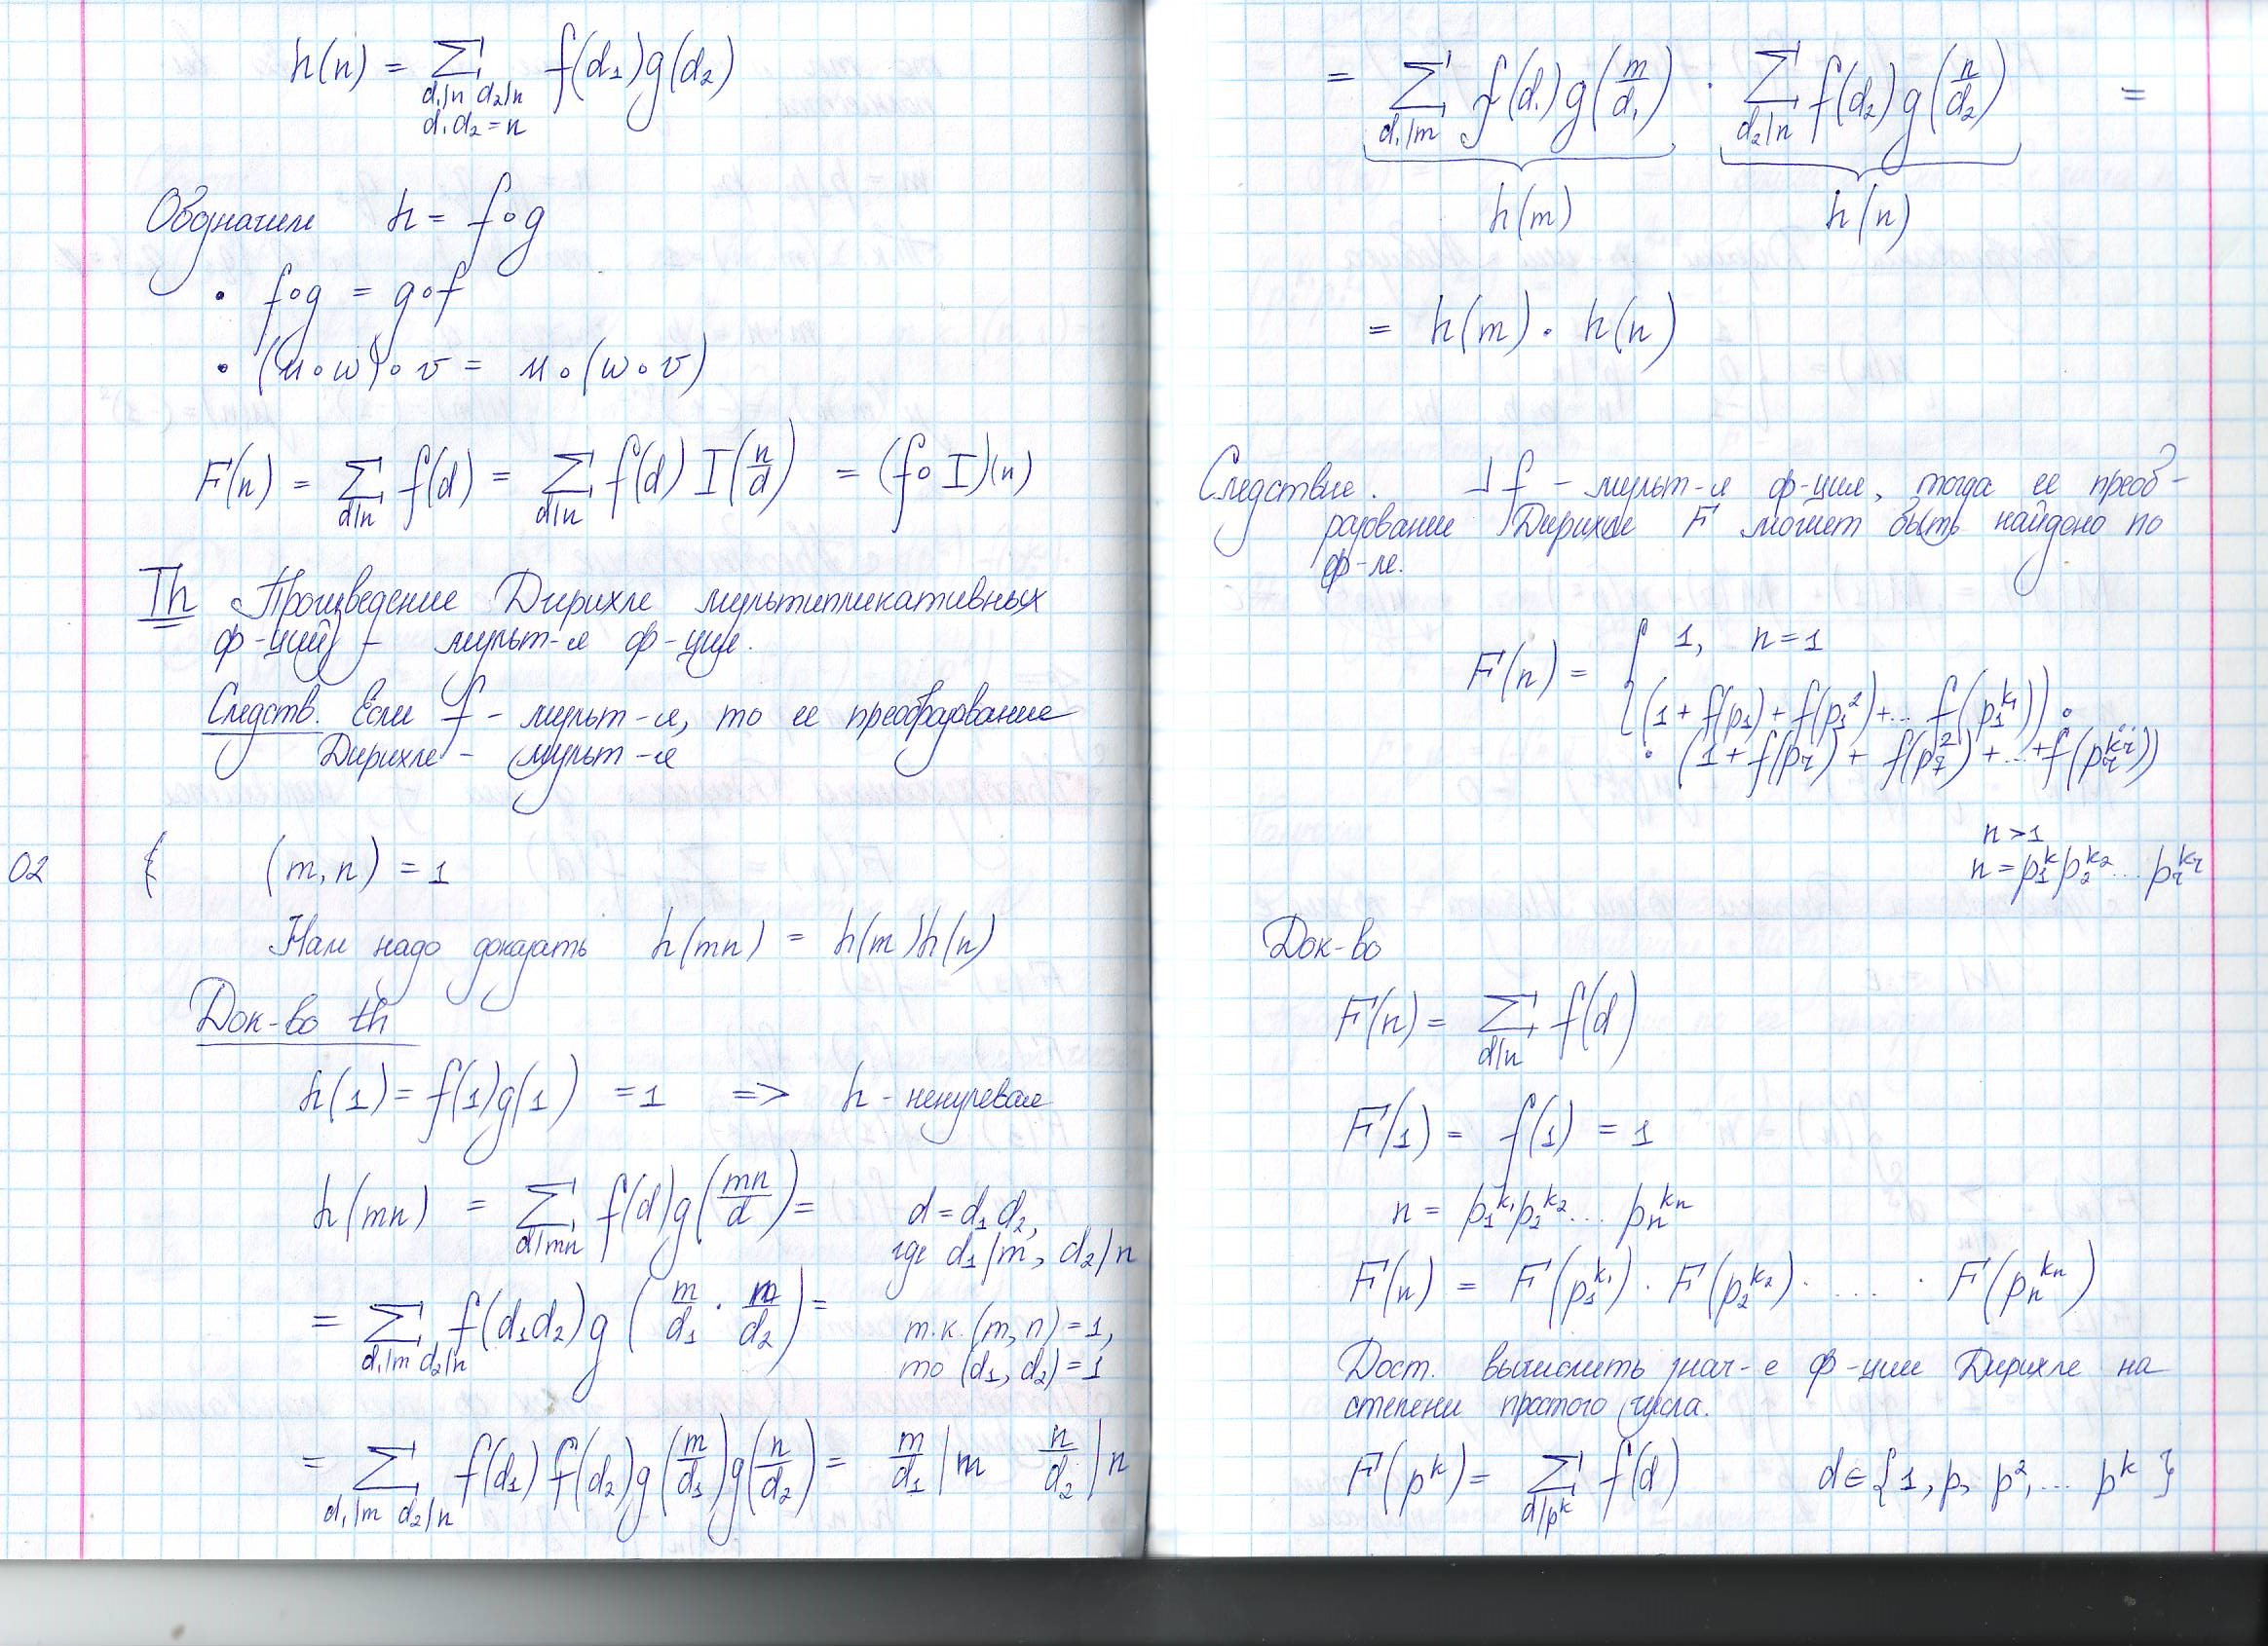 h(n) = ∑ f(d₁)g(d₂)
d₁|n d₂|n
d₁d₂=n
Обозначим h = f∘g
• f∘g = g∘f
• (u∘w)∘v = u∘(w∘v)
F(n) = ∑_{d|n} f(d) = ∑_{d|n} f(d) I(n/d) = (f∘I)(n)
Th Произведение Дирихле мультипликативных
ф-ций – мульт-я ф-ция.
Следств. Если f – мульт-я, то ее преобразование
Дирихле – мульт-я
02 (m,n) = 1
Нам надо доказать h(mn) = h(m)h(n)
Док-во th
h(1) = f(1)g(1) = 1 => h – ненулевая
h(mn) = ∑_{d|mn} f(d)g(mn/d) = d=d₁d₂,
где d₁|m, d₂|n
= ∑_{d₁|m d₂|n} f(d₁d₂)g(m/d₁ · n/d₂) = т.к. (m,n)=1,
то (d₁,d₂)=1
= ∑_{d₁|m d₂|n} f(d₁)f(d₂)g(m/d₁)g(n/d₂) = m/d₁|m n/d₂|n
= ∑_{d₁|m} f(d₁)g(m/d₁) · ∑_{d₂|n} f(d₂)g(n/d₂) =
h(m) h(n)
= h(m) · h(n)
Следствие. ⅃ f – мульт-я ф-ция, тогда ее преоб-
разование Дирихле F может быть найдено по
ф-ле.
F(n) = { 1, n=1
(1+f(p₁)+f(p₁²)+... f(p₁^{k₁})) · ...
· (1+f(p_r)+f(p_r²)+...+f(p_r^{k_r}))
n>1
n=p₁^{k}p₂^{k₂}...p_r^{k_r}
Док-во
F(n) = ∑_{d|n} f(d)
F(1) = f(1) = 1
n = p₁^{k₁}p₂^{k₂}...p_n^{k_n}
F(n) = F(p₁^{k₁}) · F(p₂^{k₂}) · ... · F(p_n^{k_n})
Дост. вычислить знач-е ф-ции Дирихле на
степени простого числа.
F(p^k) = ∑_{d|p^k} f(d) d∈{1, p, p², ... p^k}